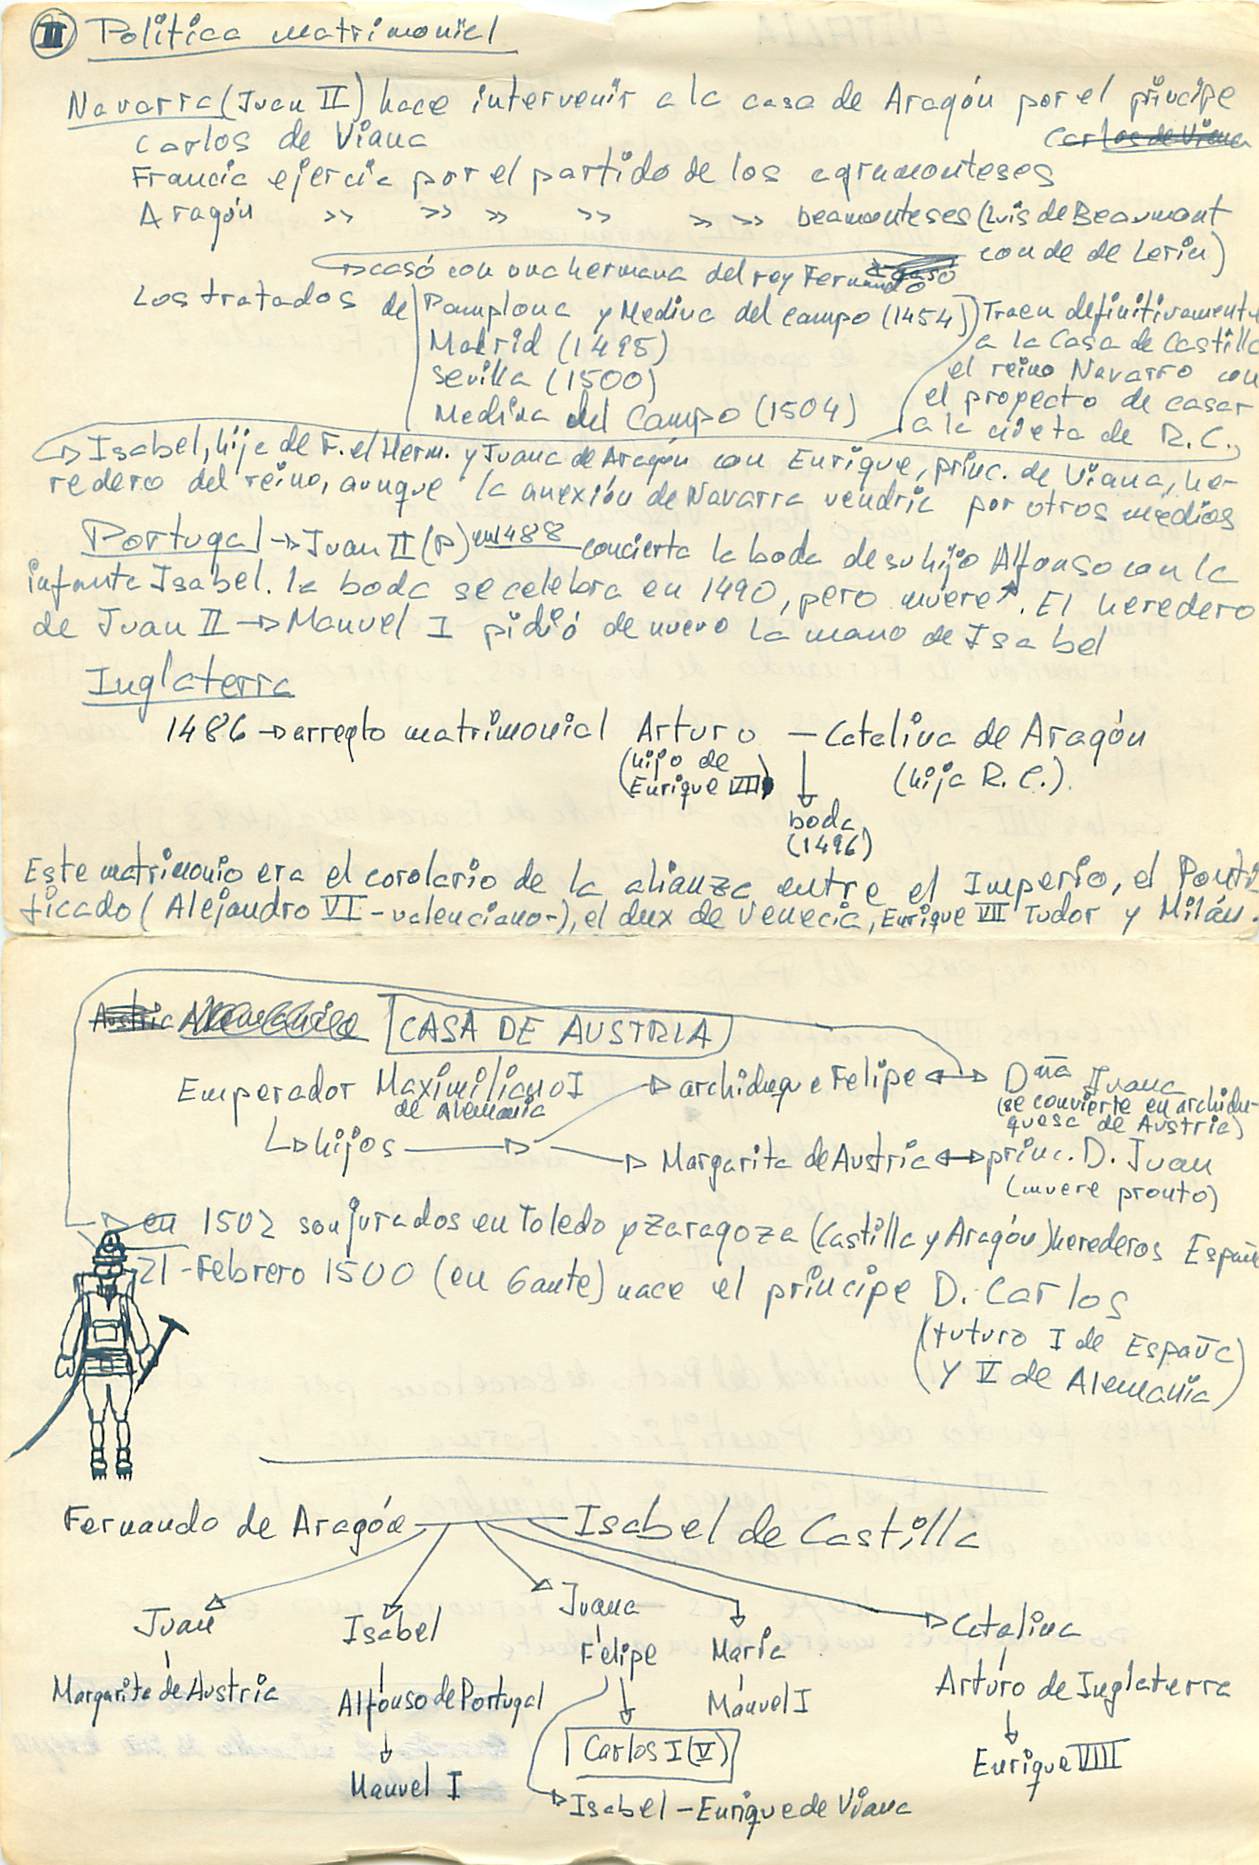 II Política matrimonial
Navarra (Juan II) hace intervenir a la casa de Aragón por el príncipe
Carlos de Viana
Carlos de Viana
Francia ejercía por el partido de los agramonteses
Aragón » » » » » » beamonteses (Luis de Beaumont
conde de Lerín)
casó con una hermana del rey Fernando
Los tratados de Pamplona y Medina del Campo (1454) Traen definitivamente
Madrid (1495) a la Casa de Castilla
Sevilla (1500) el reino Navarro con
Medina del Campo (1504) el proyecto de casar
a la nieta de R.C.,
Isabel, hija de F. el Herm. y Juana de Aragón con Enrique, princ. de Viana, he-
redero del reino, aunque la anexión de Navarra vendría por otros medios
Portugal → Juan II (P) en 1488 concierta la boda de su hijo Alfonso con la
infanta Isabel. la boda se celebra en 1490, pero muere. El heredero
de Juan II → Manuel I pidió de nuevo la mano de Isabel
Inglaterra
1486 → arreglo matrimonial Arturo — Catalina de Aragón
(hijo de (hija R.C.).
Enrique VII)
boda
(1496)
Este matrimonio era el corolario de la alianza entre el Imperio, el Ponti
ficado (Alejandro VI - valenciano-), el dux de Venecia, Enrique VII Tudor y Milán.
Austria CASA DE AUSTRIA
Emperador Maximiliano I archiduque Felipe ↔ Dña Juana
de Alemania (se convierte en archidu-
quesa de Austria)
hijos → Margarita de Austria ↔ princ. D. Juan
(muere pronto)
en 1502 son jurados en Toledo y Zaragoza (Castilla y Aragón) herederos España
21 - Febrero 1500 (en Gante) nace el príncipe D. Carlos
(futuro I de España
y V de Alemania)
Fernando de Aragón — Isabel de Castilla
Juan Isabel Juana María Catalina
Margarita de Austria Alfonso de Portugal Felipe Manuel I Arturo de Inglaterra
Manuel I Carlos I (V) Enrique VIII
Isabel - Enrique de Viana